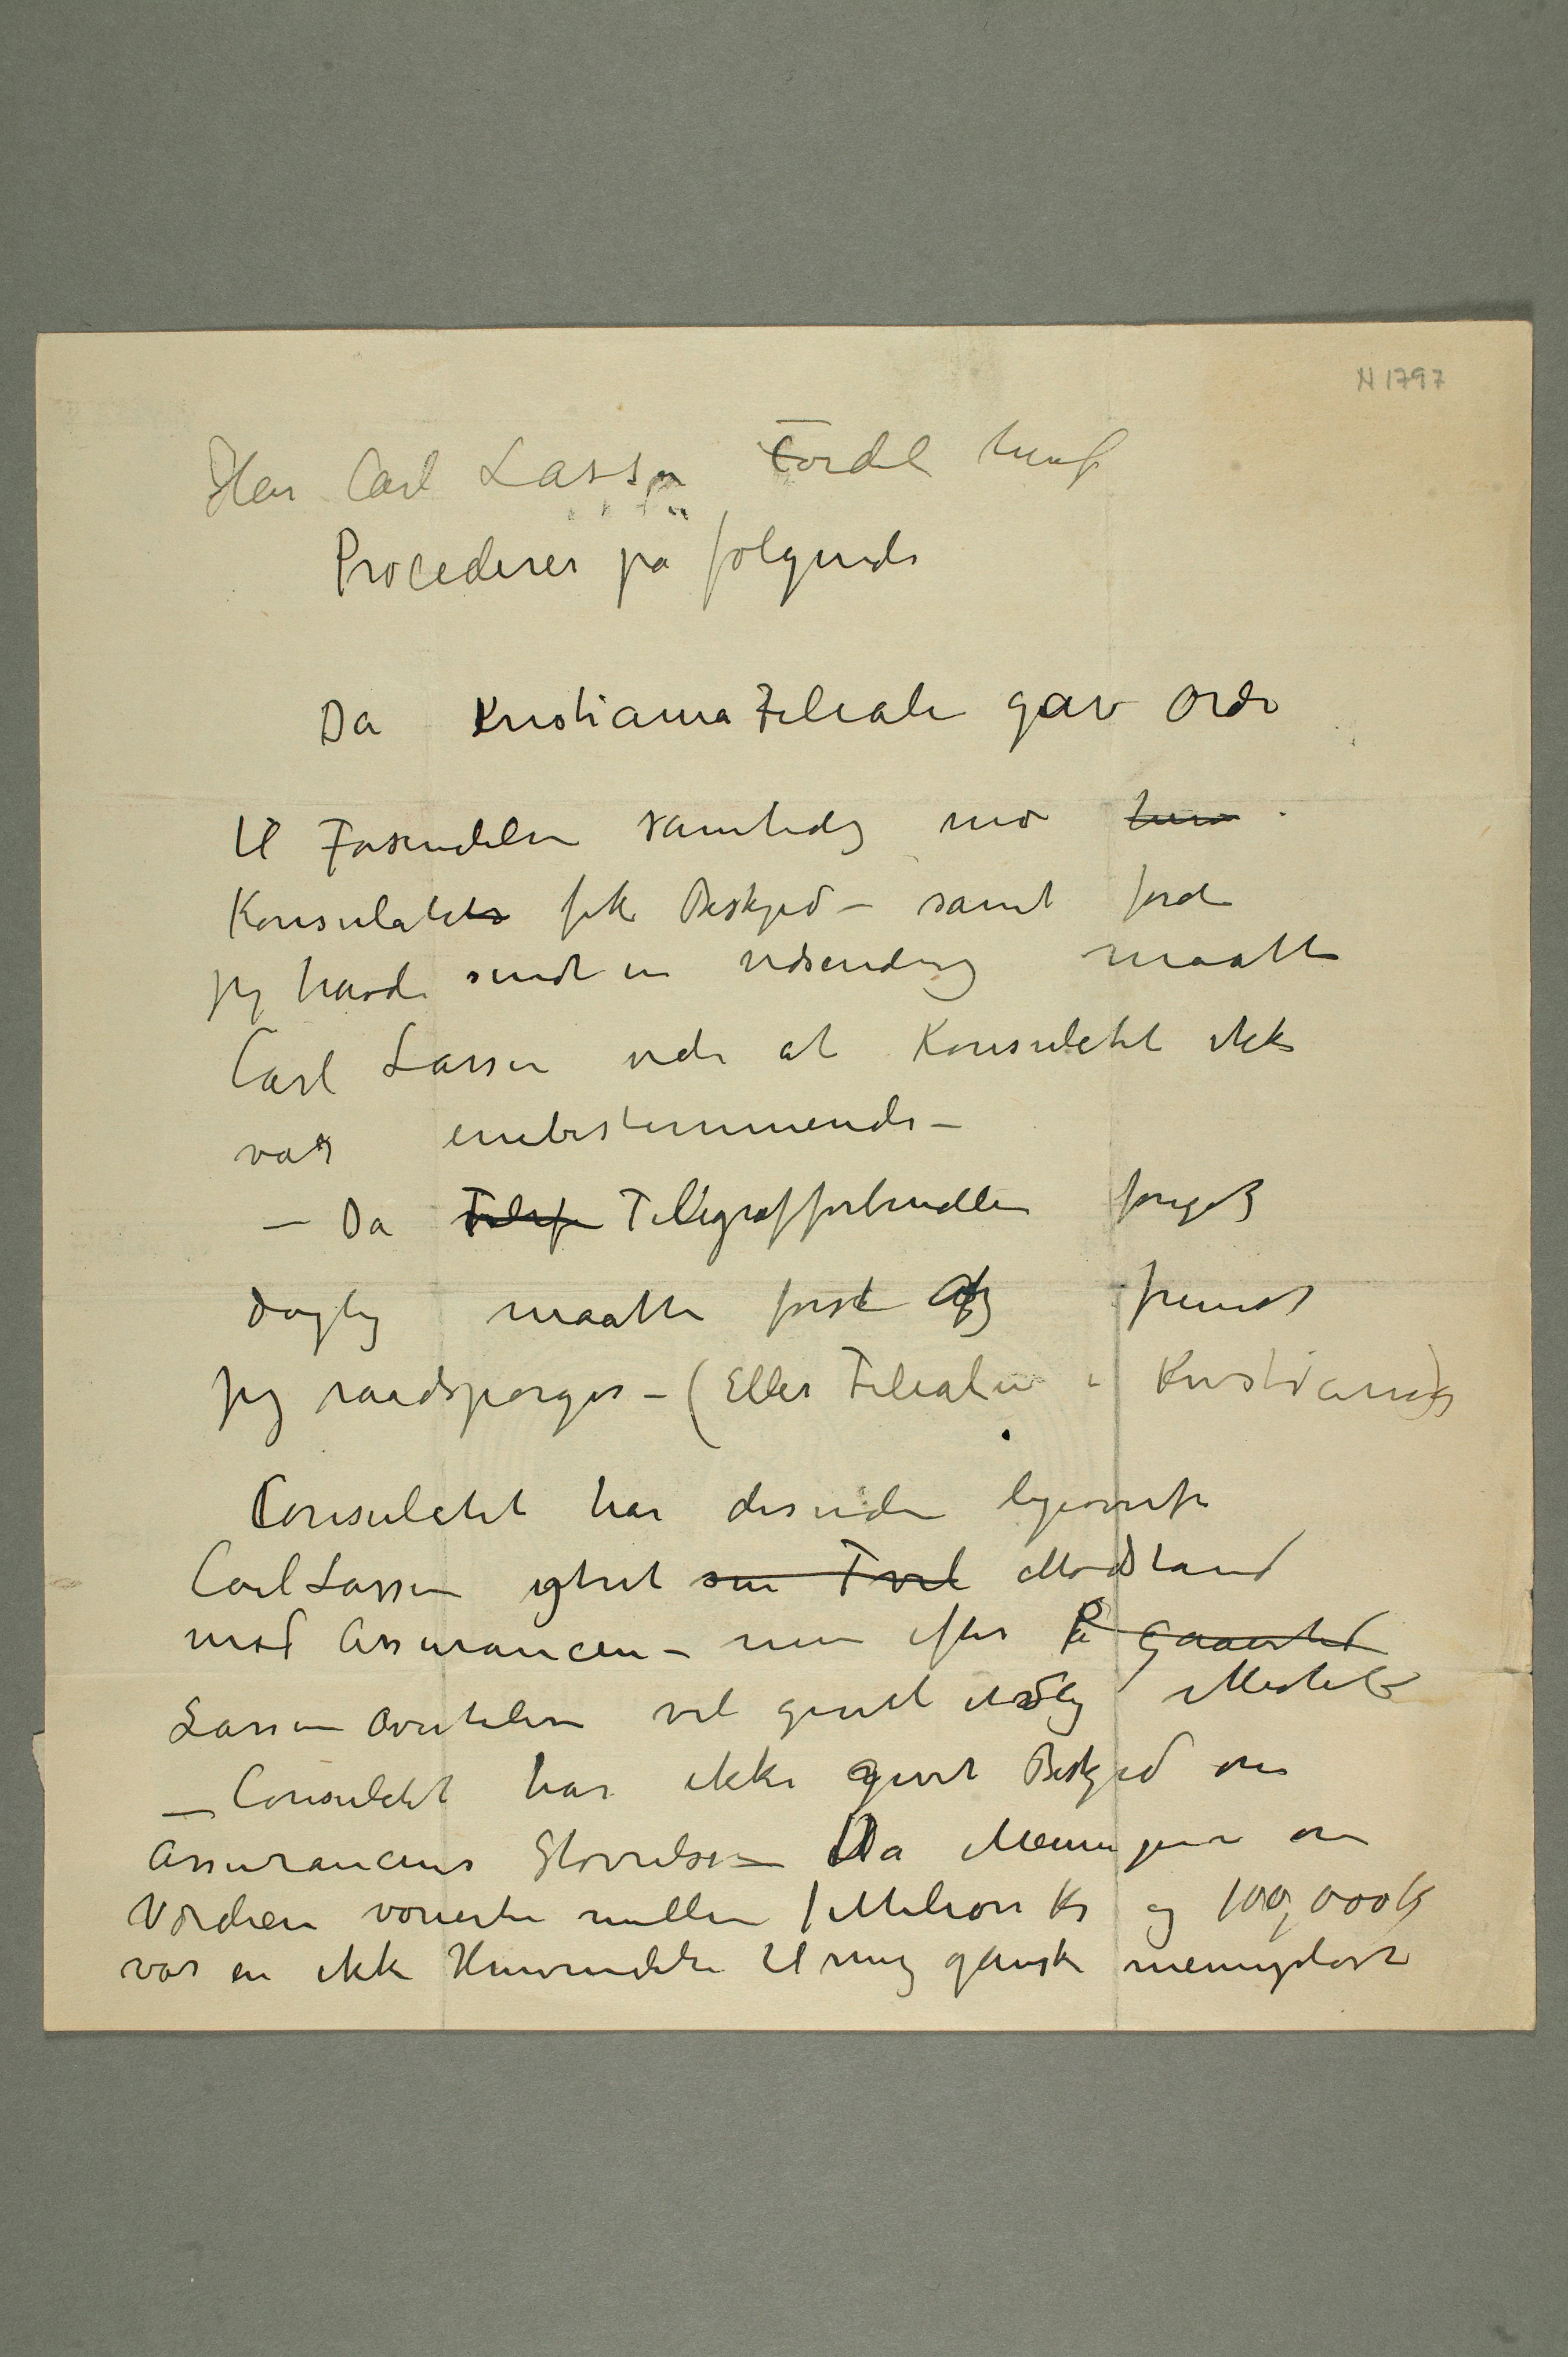 N 1797
Har Carl Lassen Fordel heraf
Procederes på følgende
Da Kristiania Filiale gav Ordre
til Forsendelsen samtidig med
Konsulatets fik Beskjed – samt fordi
jeg havde sendt en Udsending maatte
Carl Lassen vide at Konsulatet ikke
var enebestemmende –
– Da Telegrafforbindelsen foregik
daglig maatte først
jeg raadspørges – (Eller Filialen i Kristiania)
Consulatet har desuden ligeoverfor
Carl Lassen ytret sin Tvil Modstand
mod Assurancen – men efter
Lassens Overtalelse vel givet
– Consulatet har ikke givet Beskjed om
Assurancens Størrelse – Da Meningene om
Værdien varierte mellem 1 Million Kr og 100,000 Kr
var en ikke Henvendelse til mig ganske meningsløst